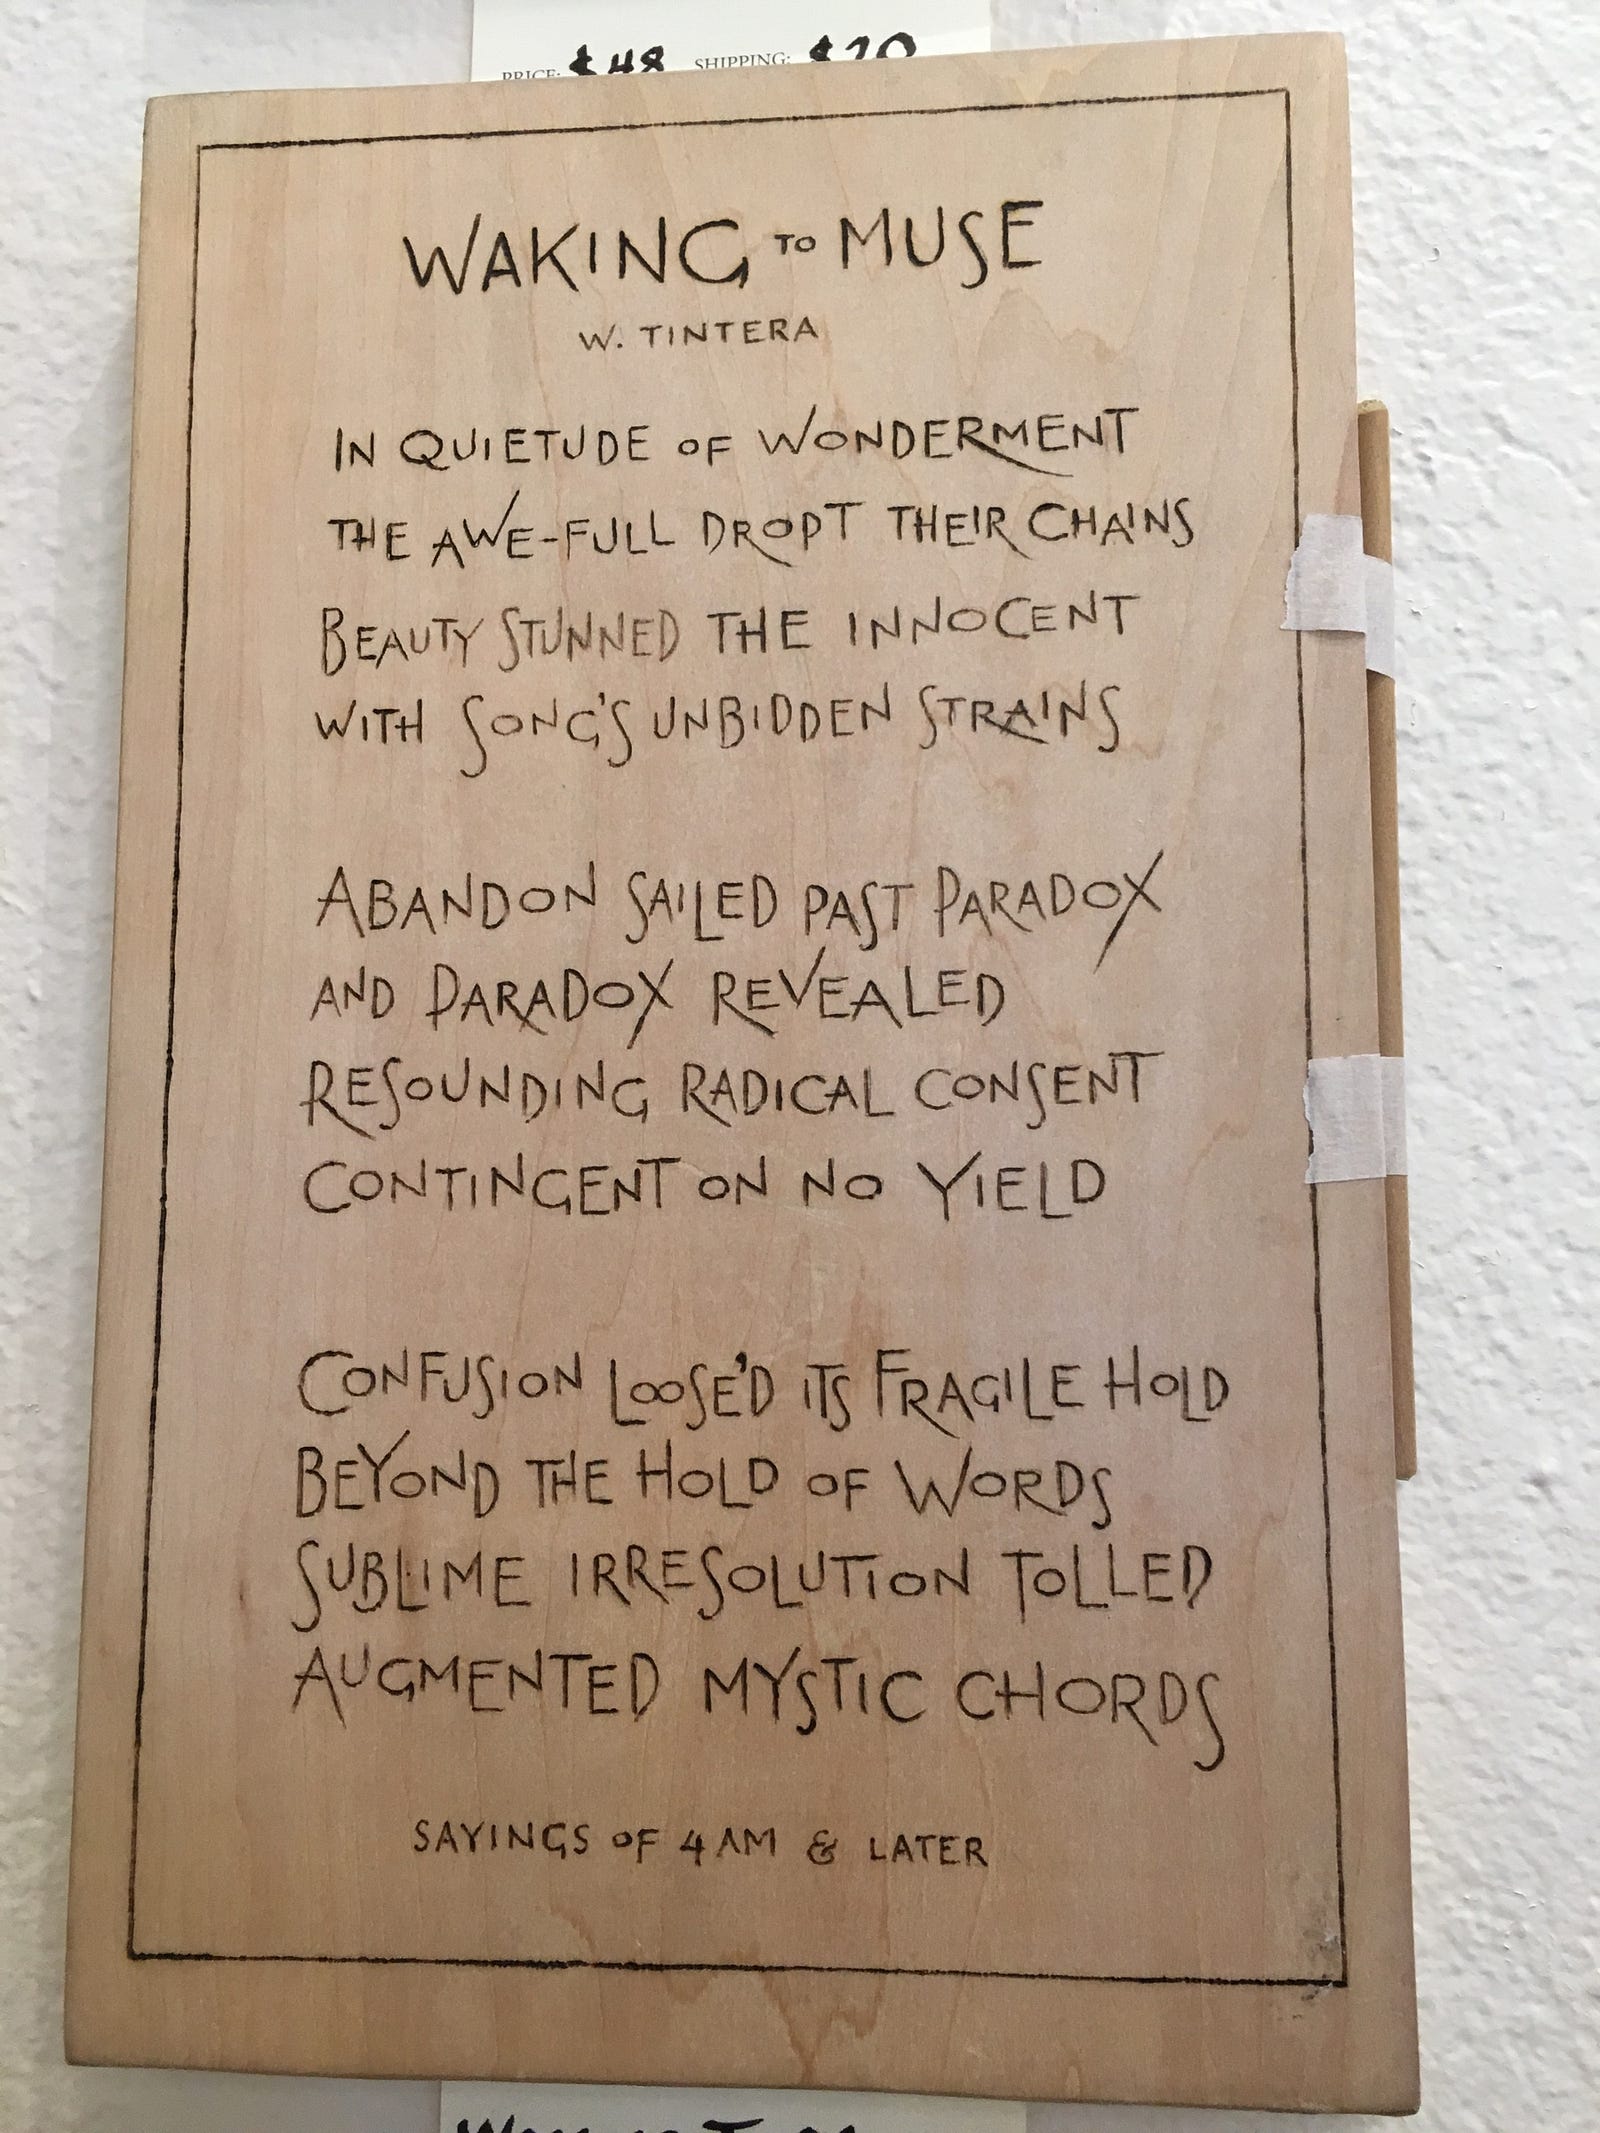 PRICE: $48 SHIPPING: $20
WAKING TO MUSE
W. TINTERA
IN QUIETUDE OF WONDERMENT
THE AWE-FULL DROPT THEIR CHAINS
BEAUTY STUNNED THE INNOCENT
WITH SONG'S UNBIDDEN STRAINS
ABANDON SAILED PAST PARADOX
AND PARADOX REVEALED
RESOUNDING RADICAL CONSENT
CONTINGENT ON NO YIELD
CONFUSION LOOSE'D ITS FRAGILE HOLD
BEYOND THE HOLD OF WORDS
SUBLIME IRRESOLUTION TOLLED
AUGMENTED MYSTIC CHORDS
SAYINGS OF 4 AM & LATER